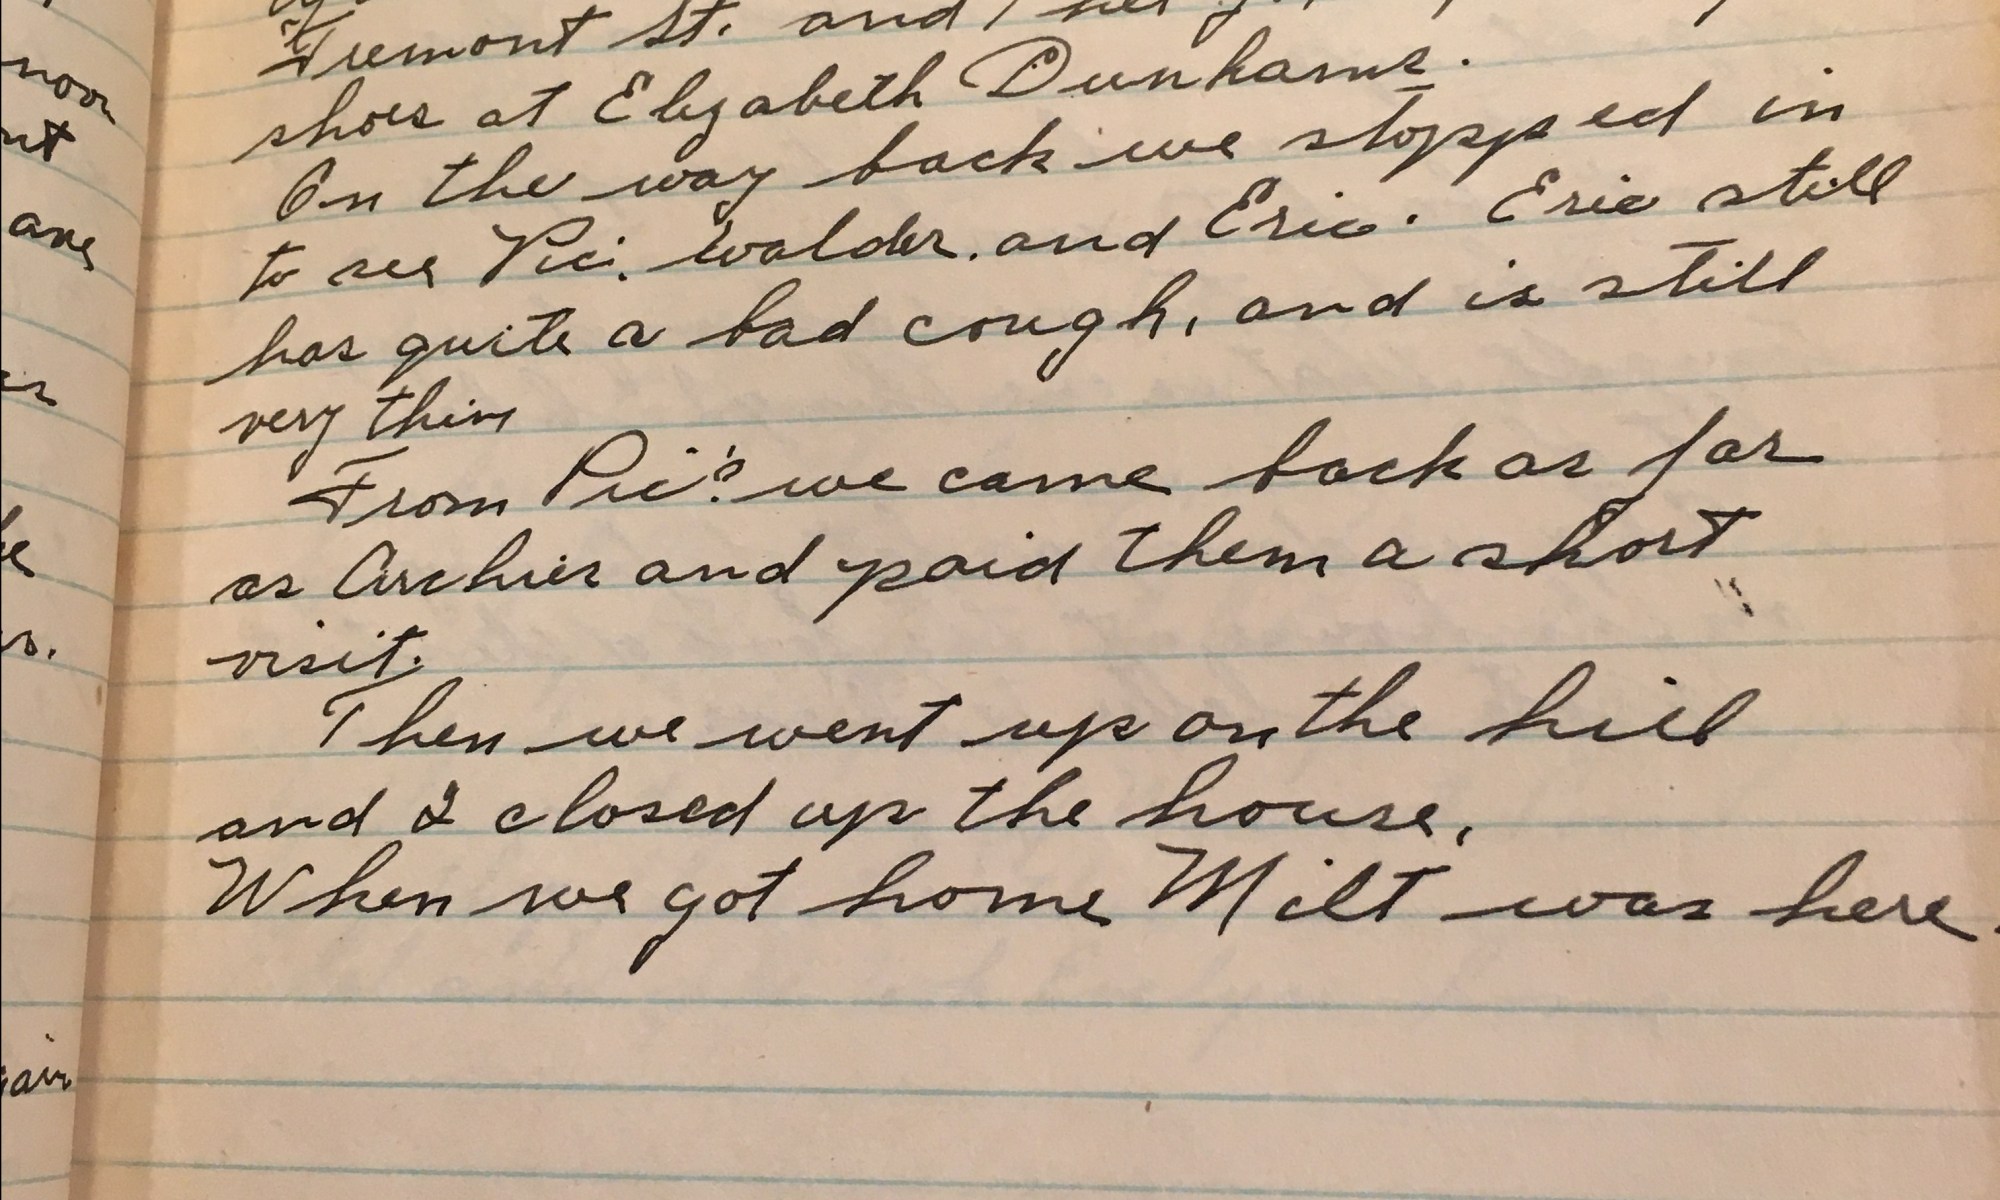 Tremont St. and
shoes at Elizabeth Dunhams.
On the way back we stopped in
to see Vic. Walder. and Eric. Eric still
has quite a bad cough, and is still
very thin
From Vic's we came back as far
as Archies and paid them a short
visit.
Then we went up on the hill
and I closed up the house.
When we got home Milt was here.
noon
ave